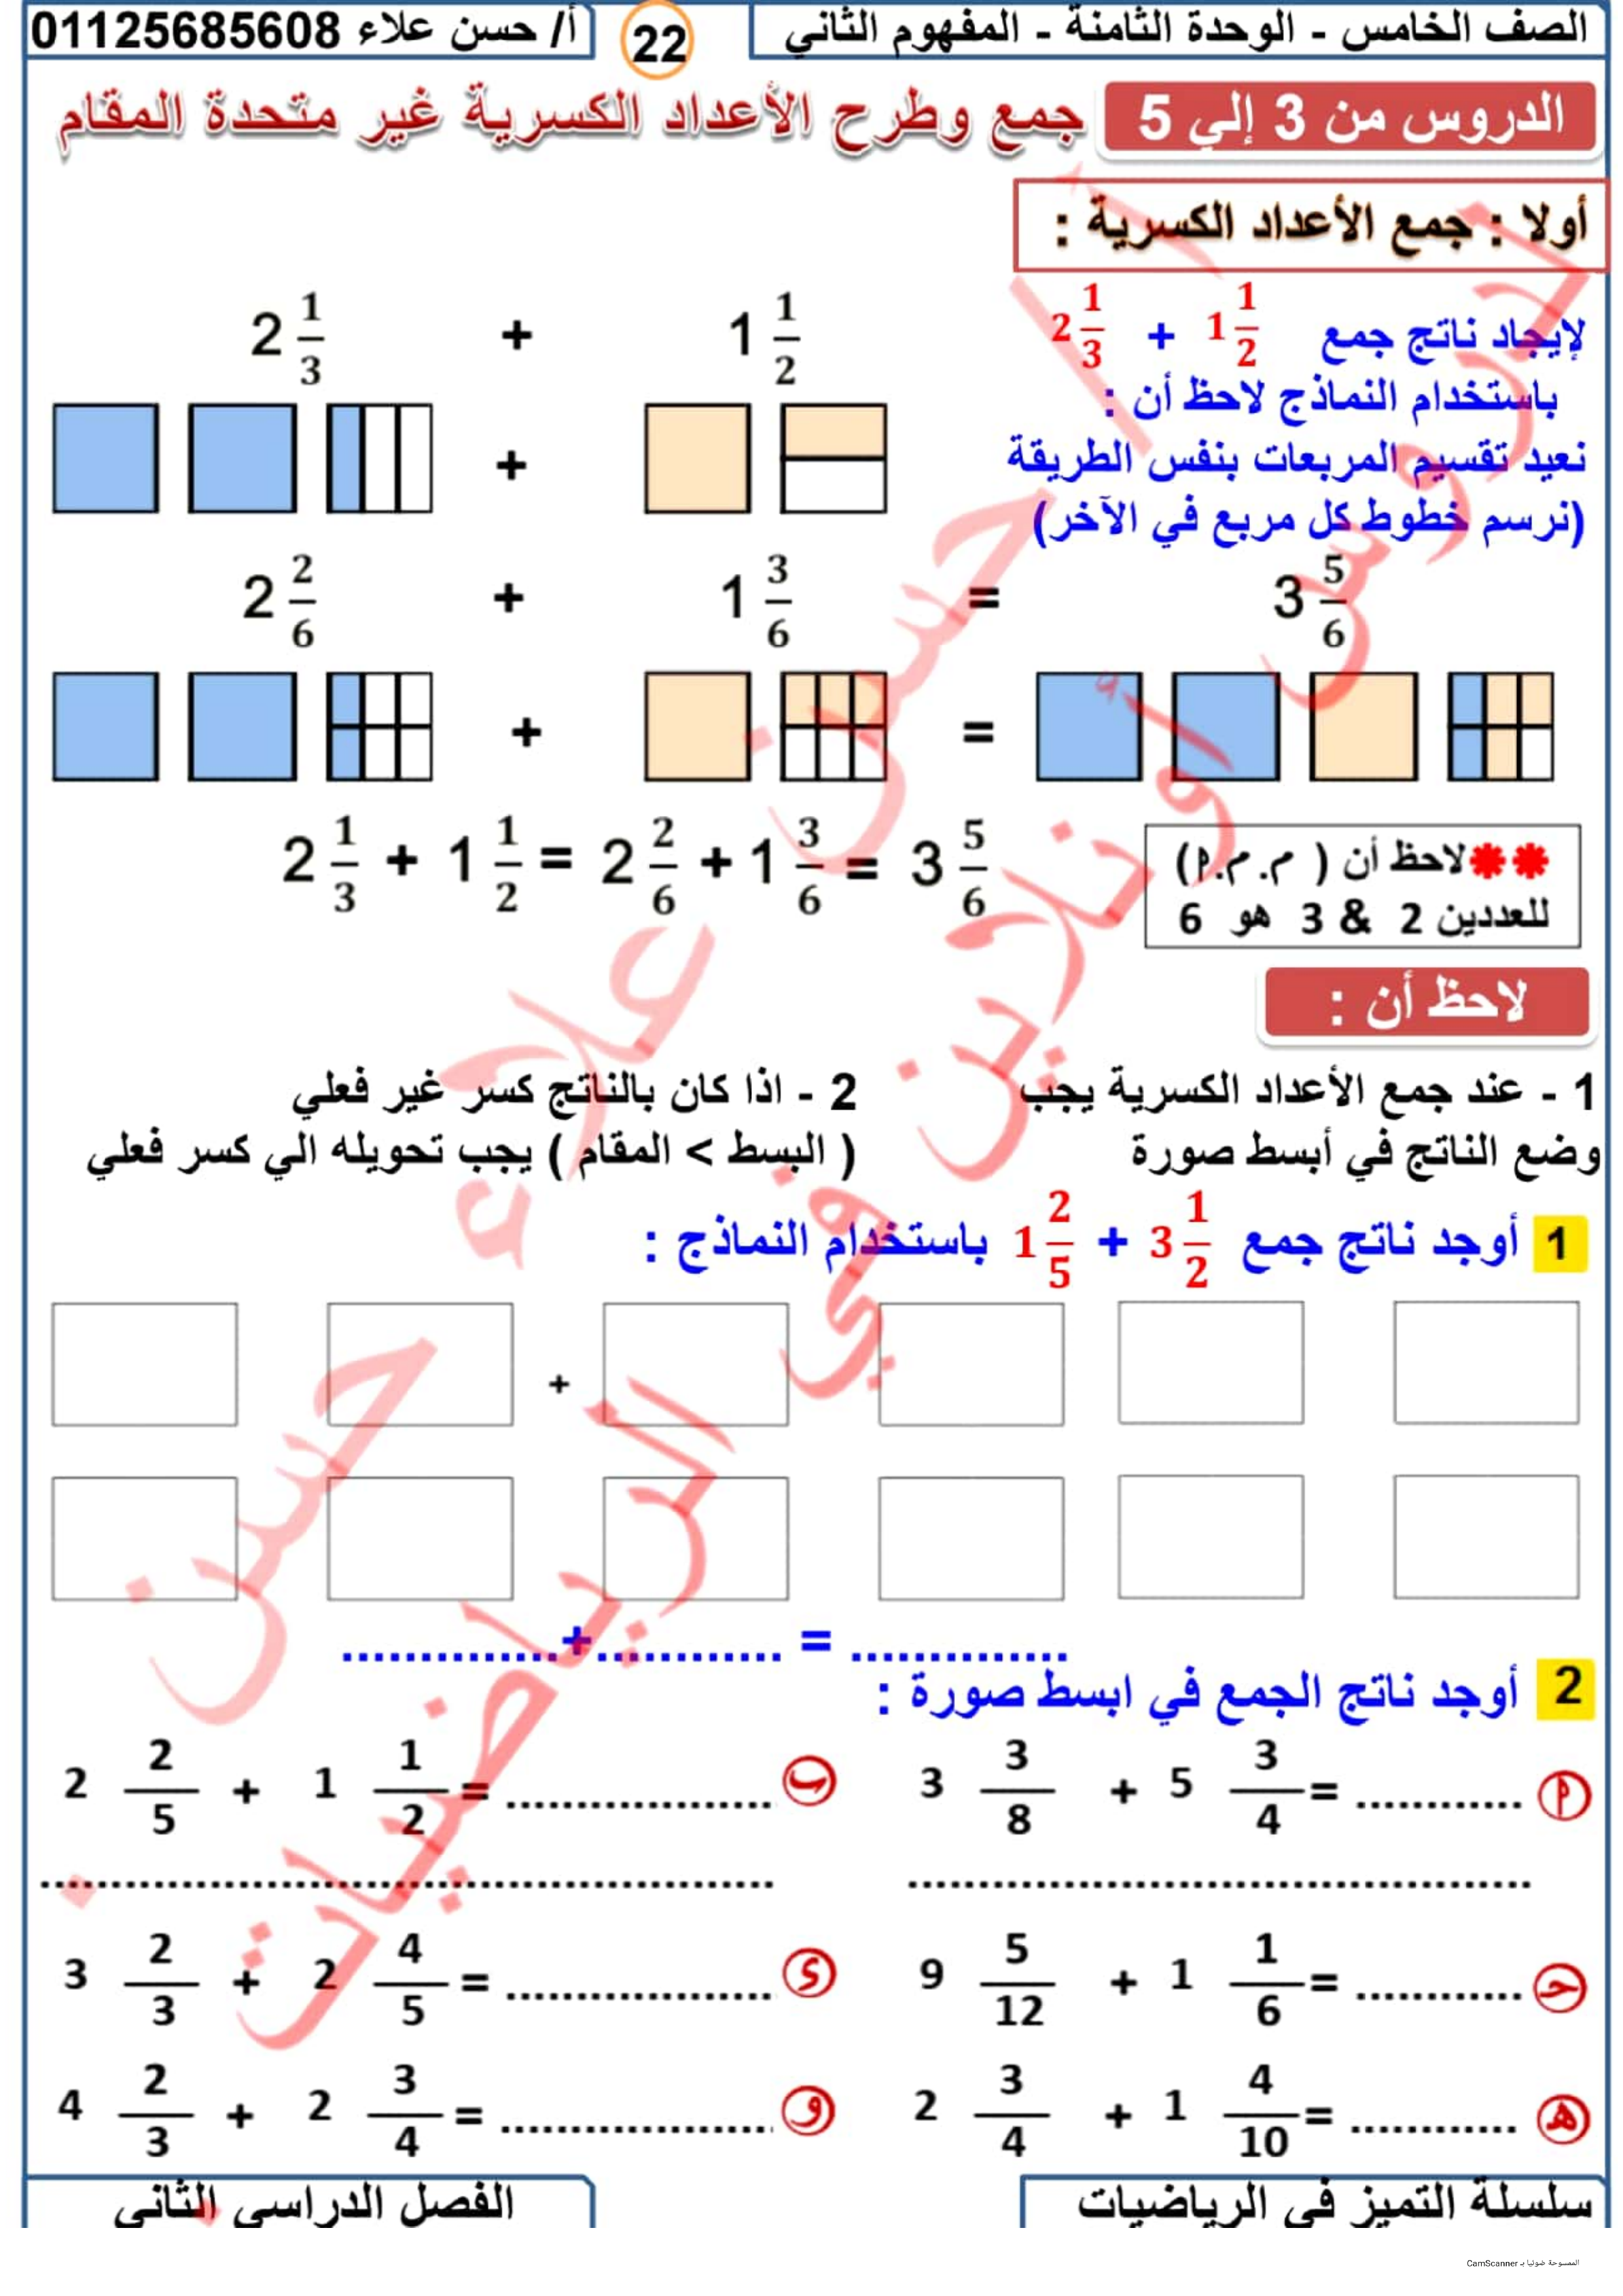 الصف الخامس - الوحدة الثامنة - المفهوم الثاني
22
أ/ حسن علاء 01125685608
الدروس من 3 إلي 5
جمع وطرح الأعداد الكسرية غير متحدة المقام
أولا : جمع الأعداد الكسرية :
لإيجاد ناتج جمع 2 1/3 + 1 1/2
باستخدام النماذج لاحظ أن :
نعيد تقسيم المربعات بنفس الطريقة
(نرسم خطوط كل مربع في الآخر)
2 1/3 + 1 1/2
+
2 2/6 + 1 3/6 = 3 5/6
+ =
2 1/3 + 1 1/2 = 2 2/6 + 1 3/6 = 3 5/6
**لاحظ أن ( م.م.م)
للعددين 2 & 3 هو 6
لاحظ أن :
1 - عند جمع الأعداد الكسرية يجب
وضع الناتج في أبسط صورة
2 - اذا كان بالناتج كسر غير فعلي
( البسط > المقام ) يجب تحويله الي كسر فعلي
1 أوجد ناتج جمع 1 2/5 + 3 1/2 باستخدام النماذج :
+
..............+............ = ..............
2 أوجد ناتج الجمع في ابسط صورة :
م 3 3/8 + 5 3/4 = ............
ب 2 2/5 + 1 1/2 = ...................
حـ 9 5/12 + 1 1/6 = ............
ى 3 2/3 + 2 4/5 = ...................
هـ 2 3/4 + 1 4/10 = ............
و 4 2/3 + 2 3/4 = ...................
سلسلة التميز في الرياضيات
الفصل الدراسي الثاني
حسن علاء
أ / حسن
دروس أونلاين في الرياضيات
الممسوحة ضوئيا بـ CamScanner